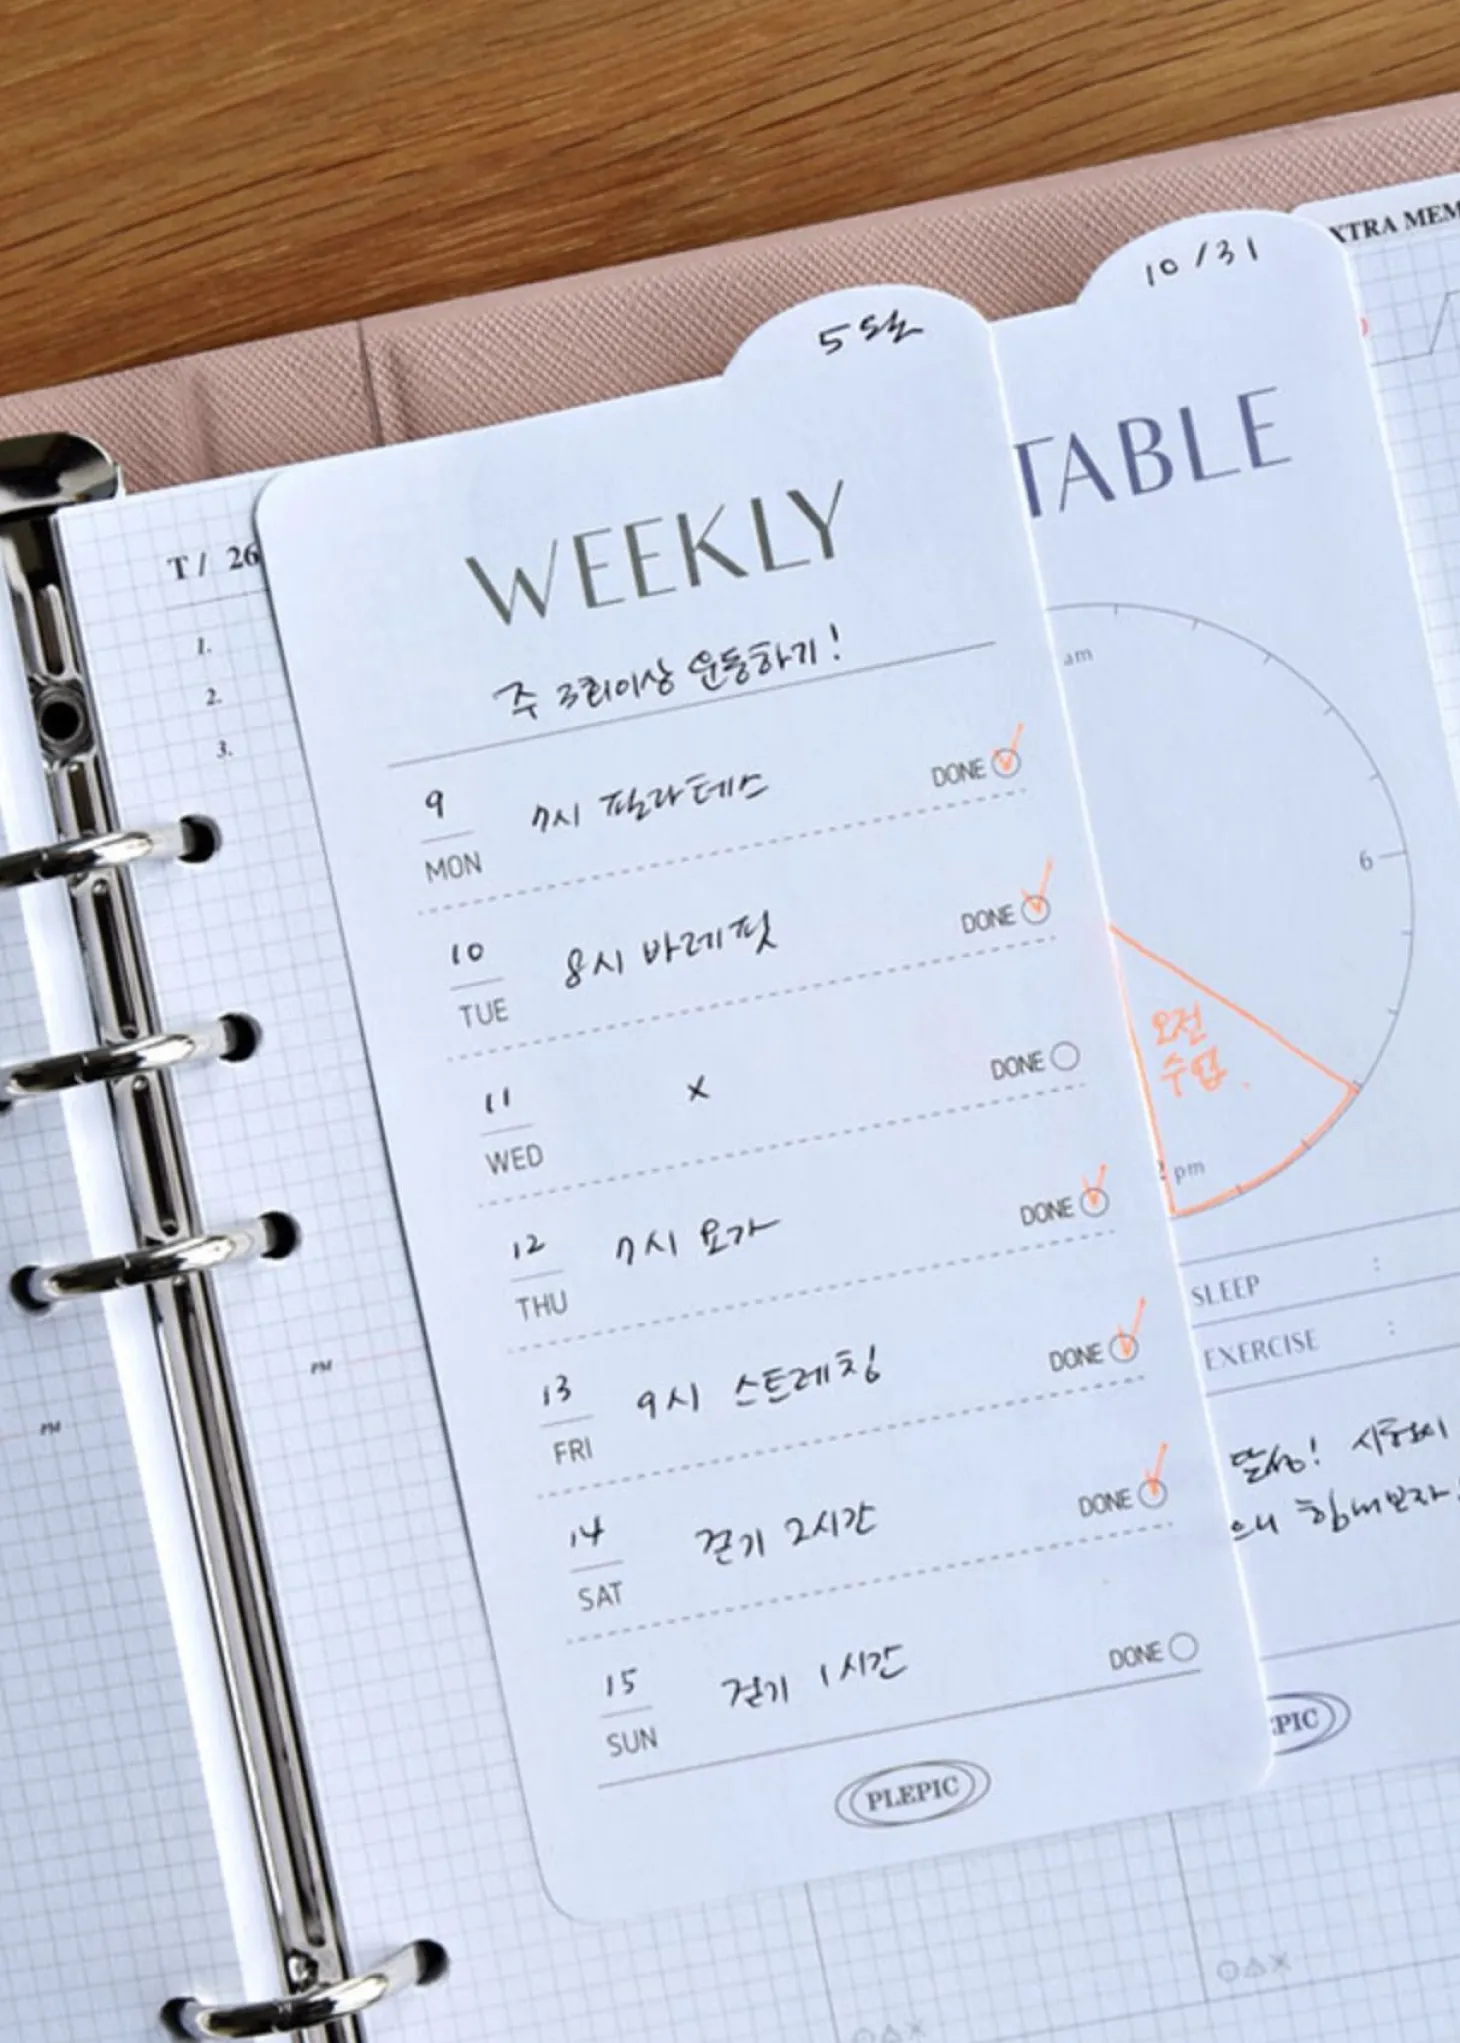 XTRA MEM
10/31
5월
TABLE
T/ 26
WEEKLY
1.
2.
3.
주 3회이상 운동하기!
am
6
9
MON
7시 필라테스
DONE
10
TUE
8시 바레핏
DONE
11
WED
x
DONE
12
THU
7시 요가
DONE
13
FRI
9시 스트레칭
DONE
14
SAT
걷기 2시간
DONE
15
SUN
걷기 1시간
DONE
PLEPIC
오전
수업.
pm
SLEEP :
EXERCISE :
달성! 시험이
으니 힘내보자
EPIC
PM
PM